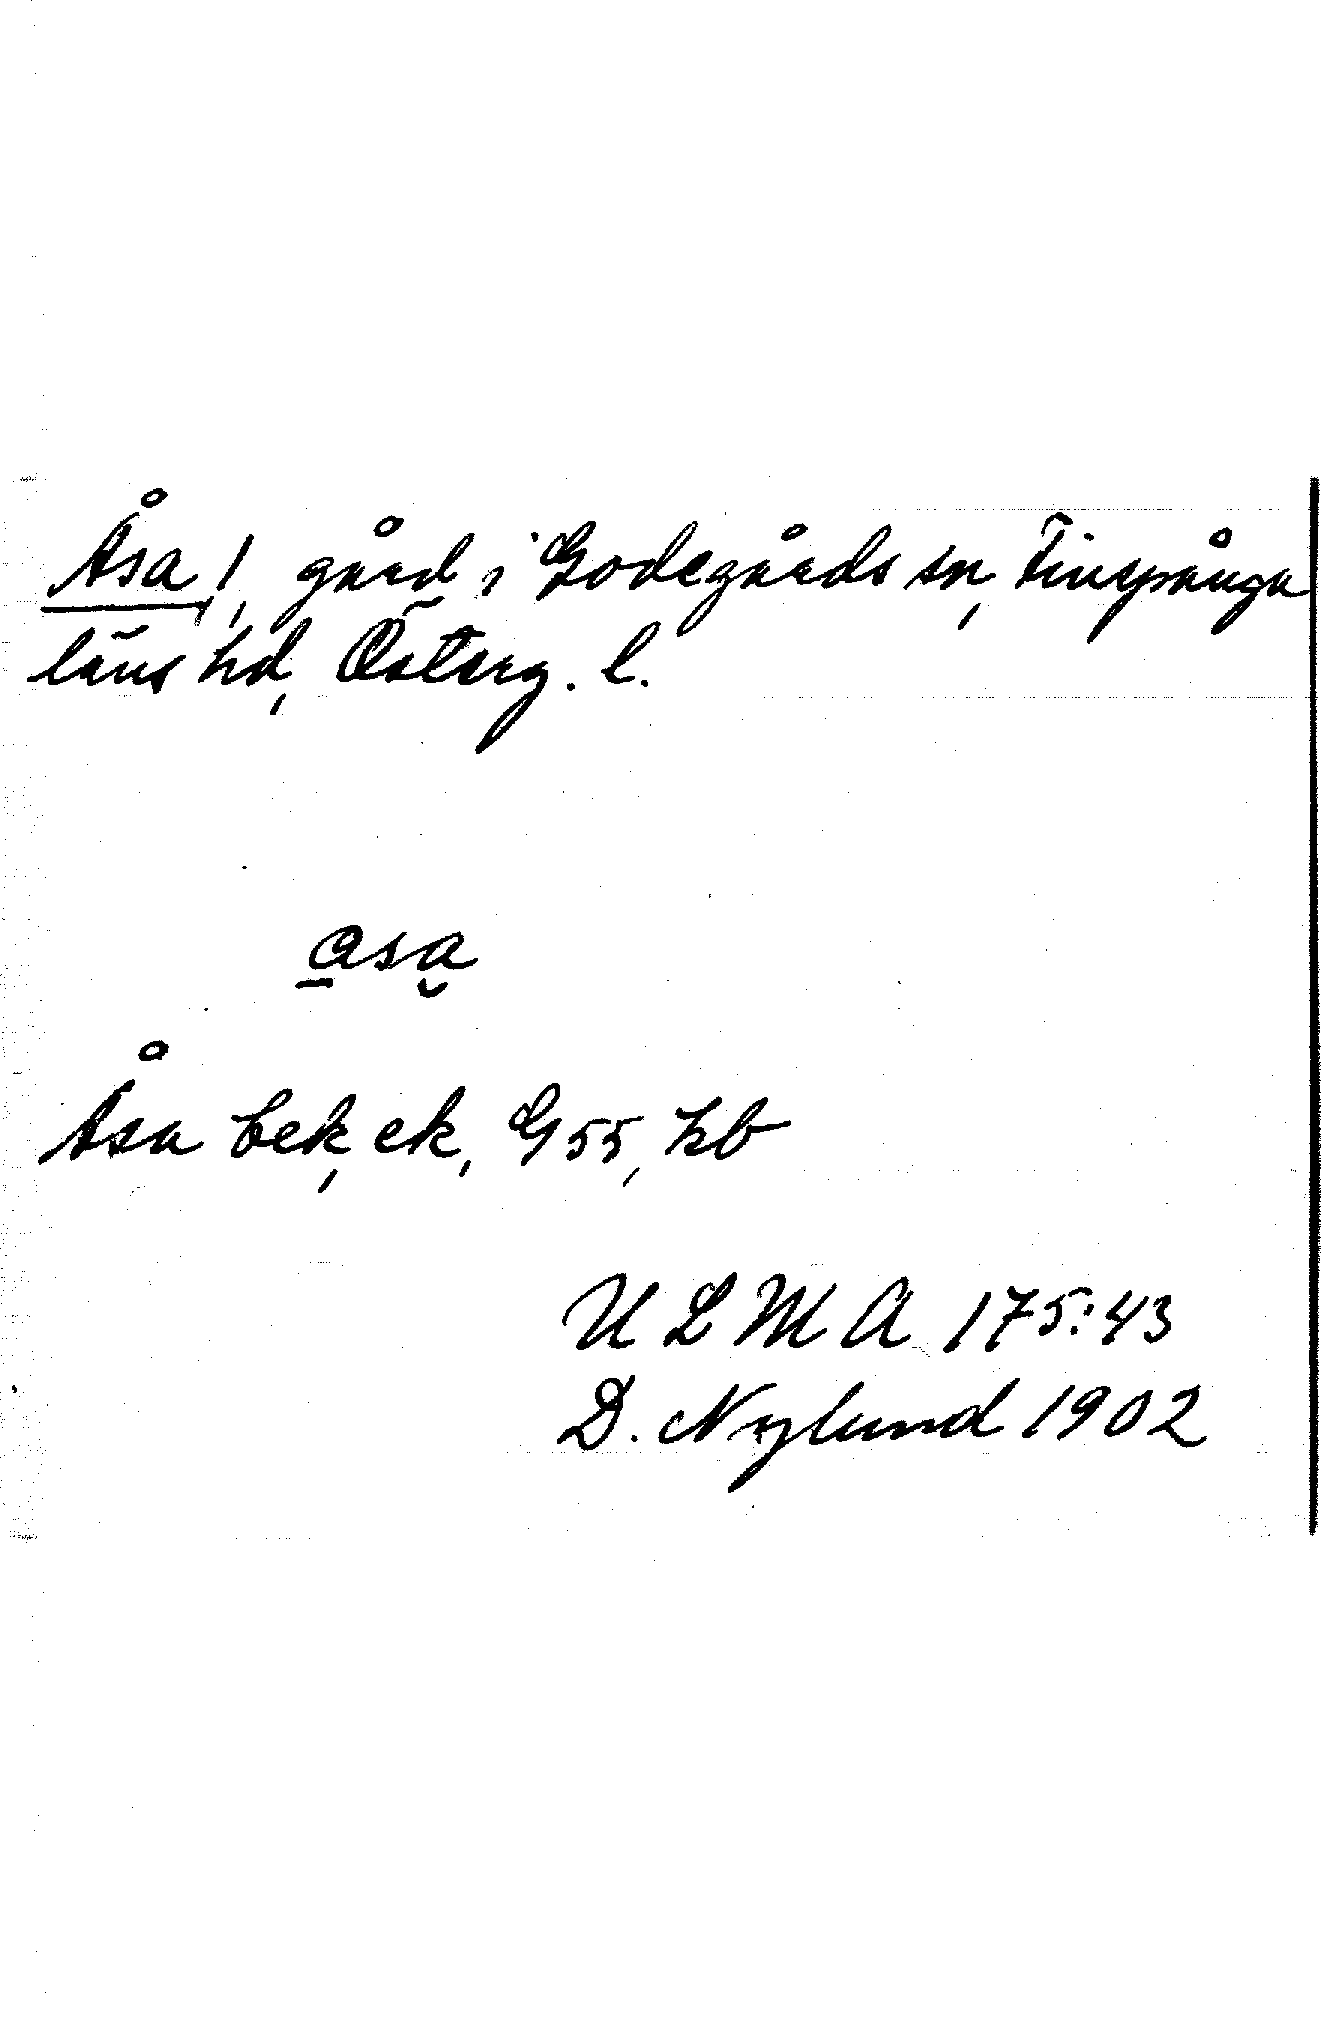 Åsa 1, gård i Godegårds sn, Finspånga
läns hd, Österg. l.
asa
Åsa bek, ek, G55, kb
ULMA 175:43
D. Nylund 1902